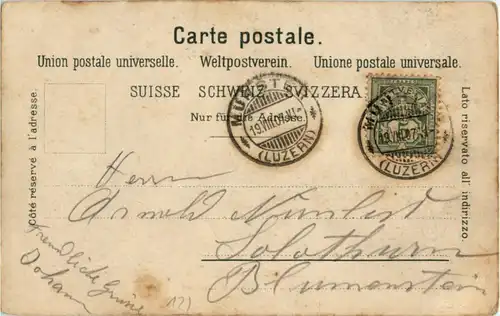 Carte postale.
Union postale universelle. Weltpostverein. Unione postale universale.
SUISSE SCHWEIZ SVIZZERA.
Nur für die Adresse.
Côté réservé à l'adresse.
Lato riservato all' indirizzo.
MÜNSTER
(LUZERN)
MÜNSTER
(LUZERN)
5
Herrn
Arnold
Solothurn
Blumenstein
Freundliche Grüsse
Johann